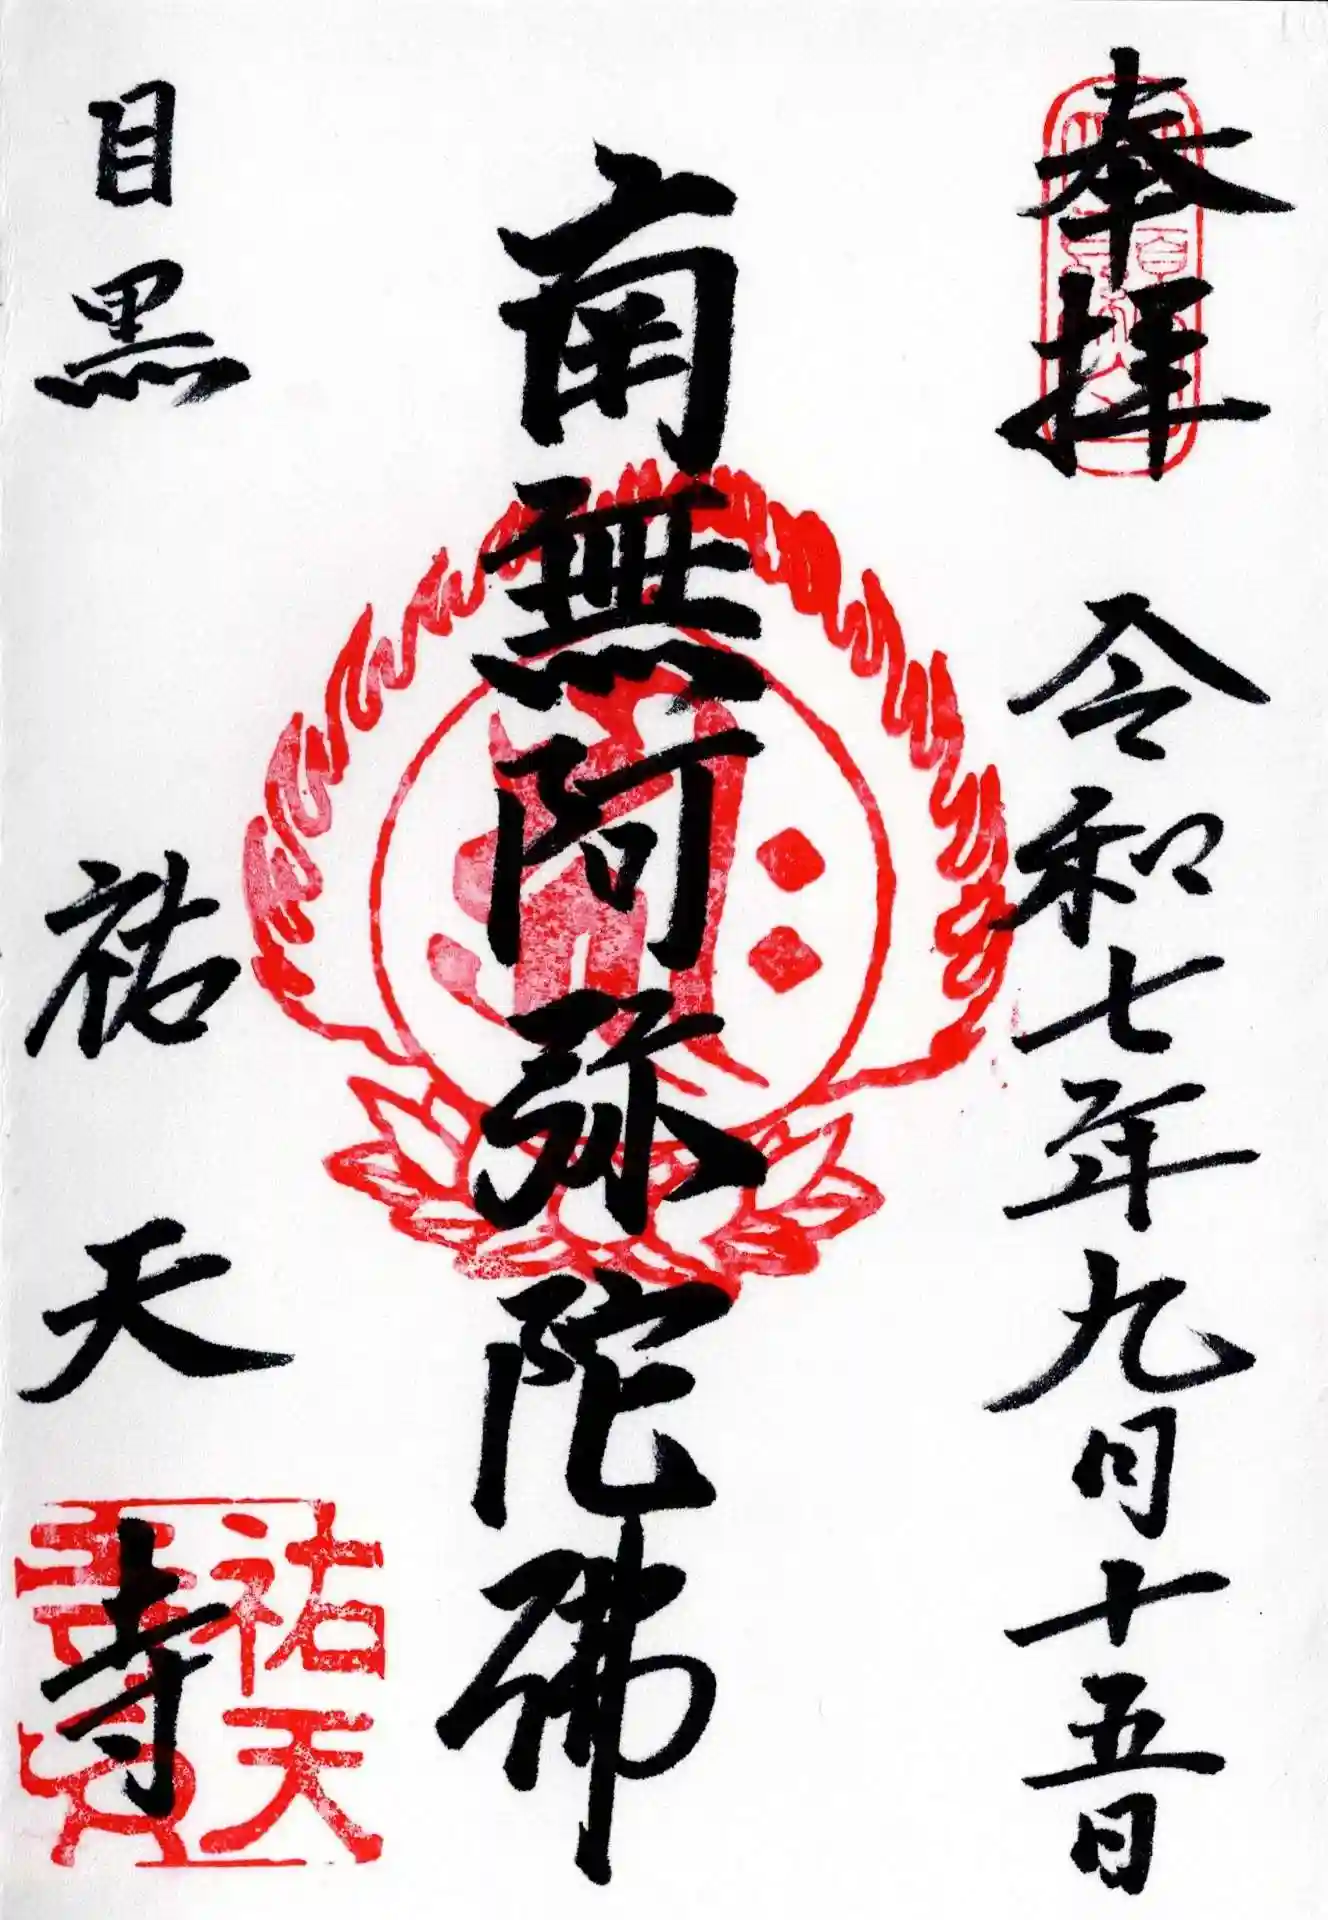 奉拝
令和七年九月十五日
南無阿弥陀佛
目黒
祐天寺
祐天